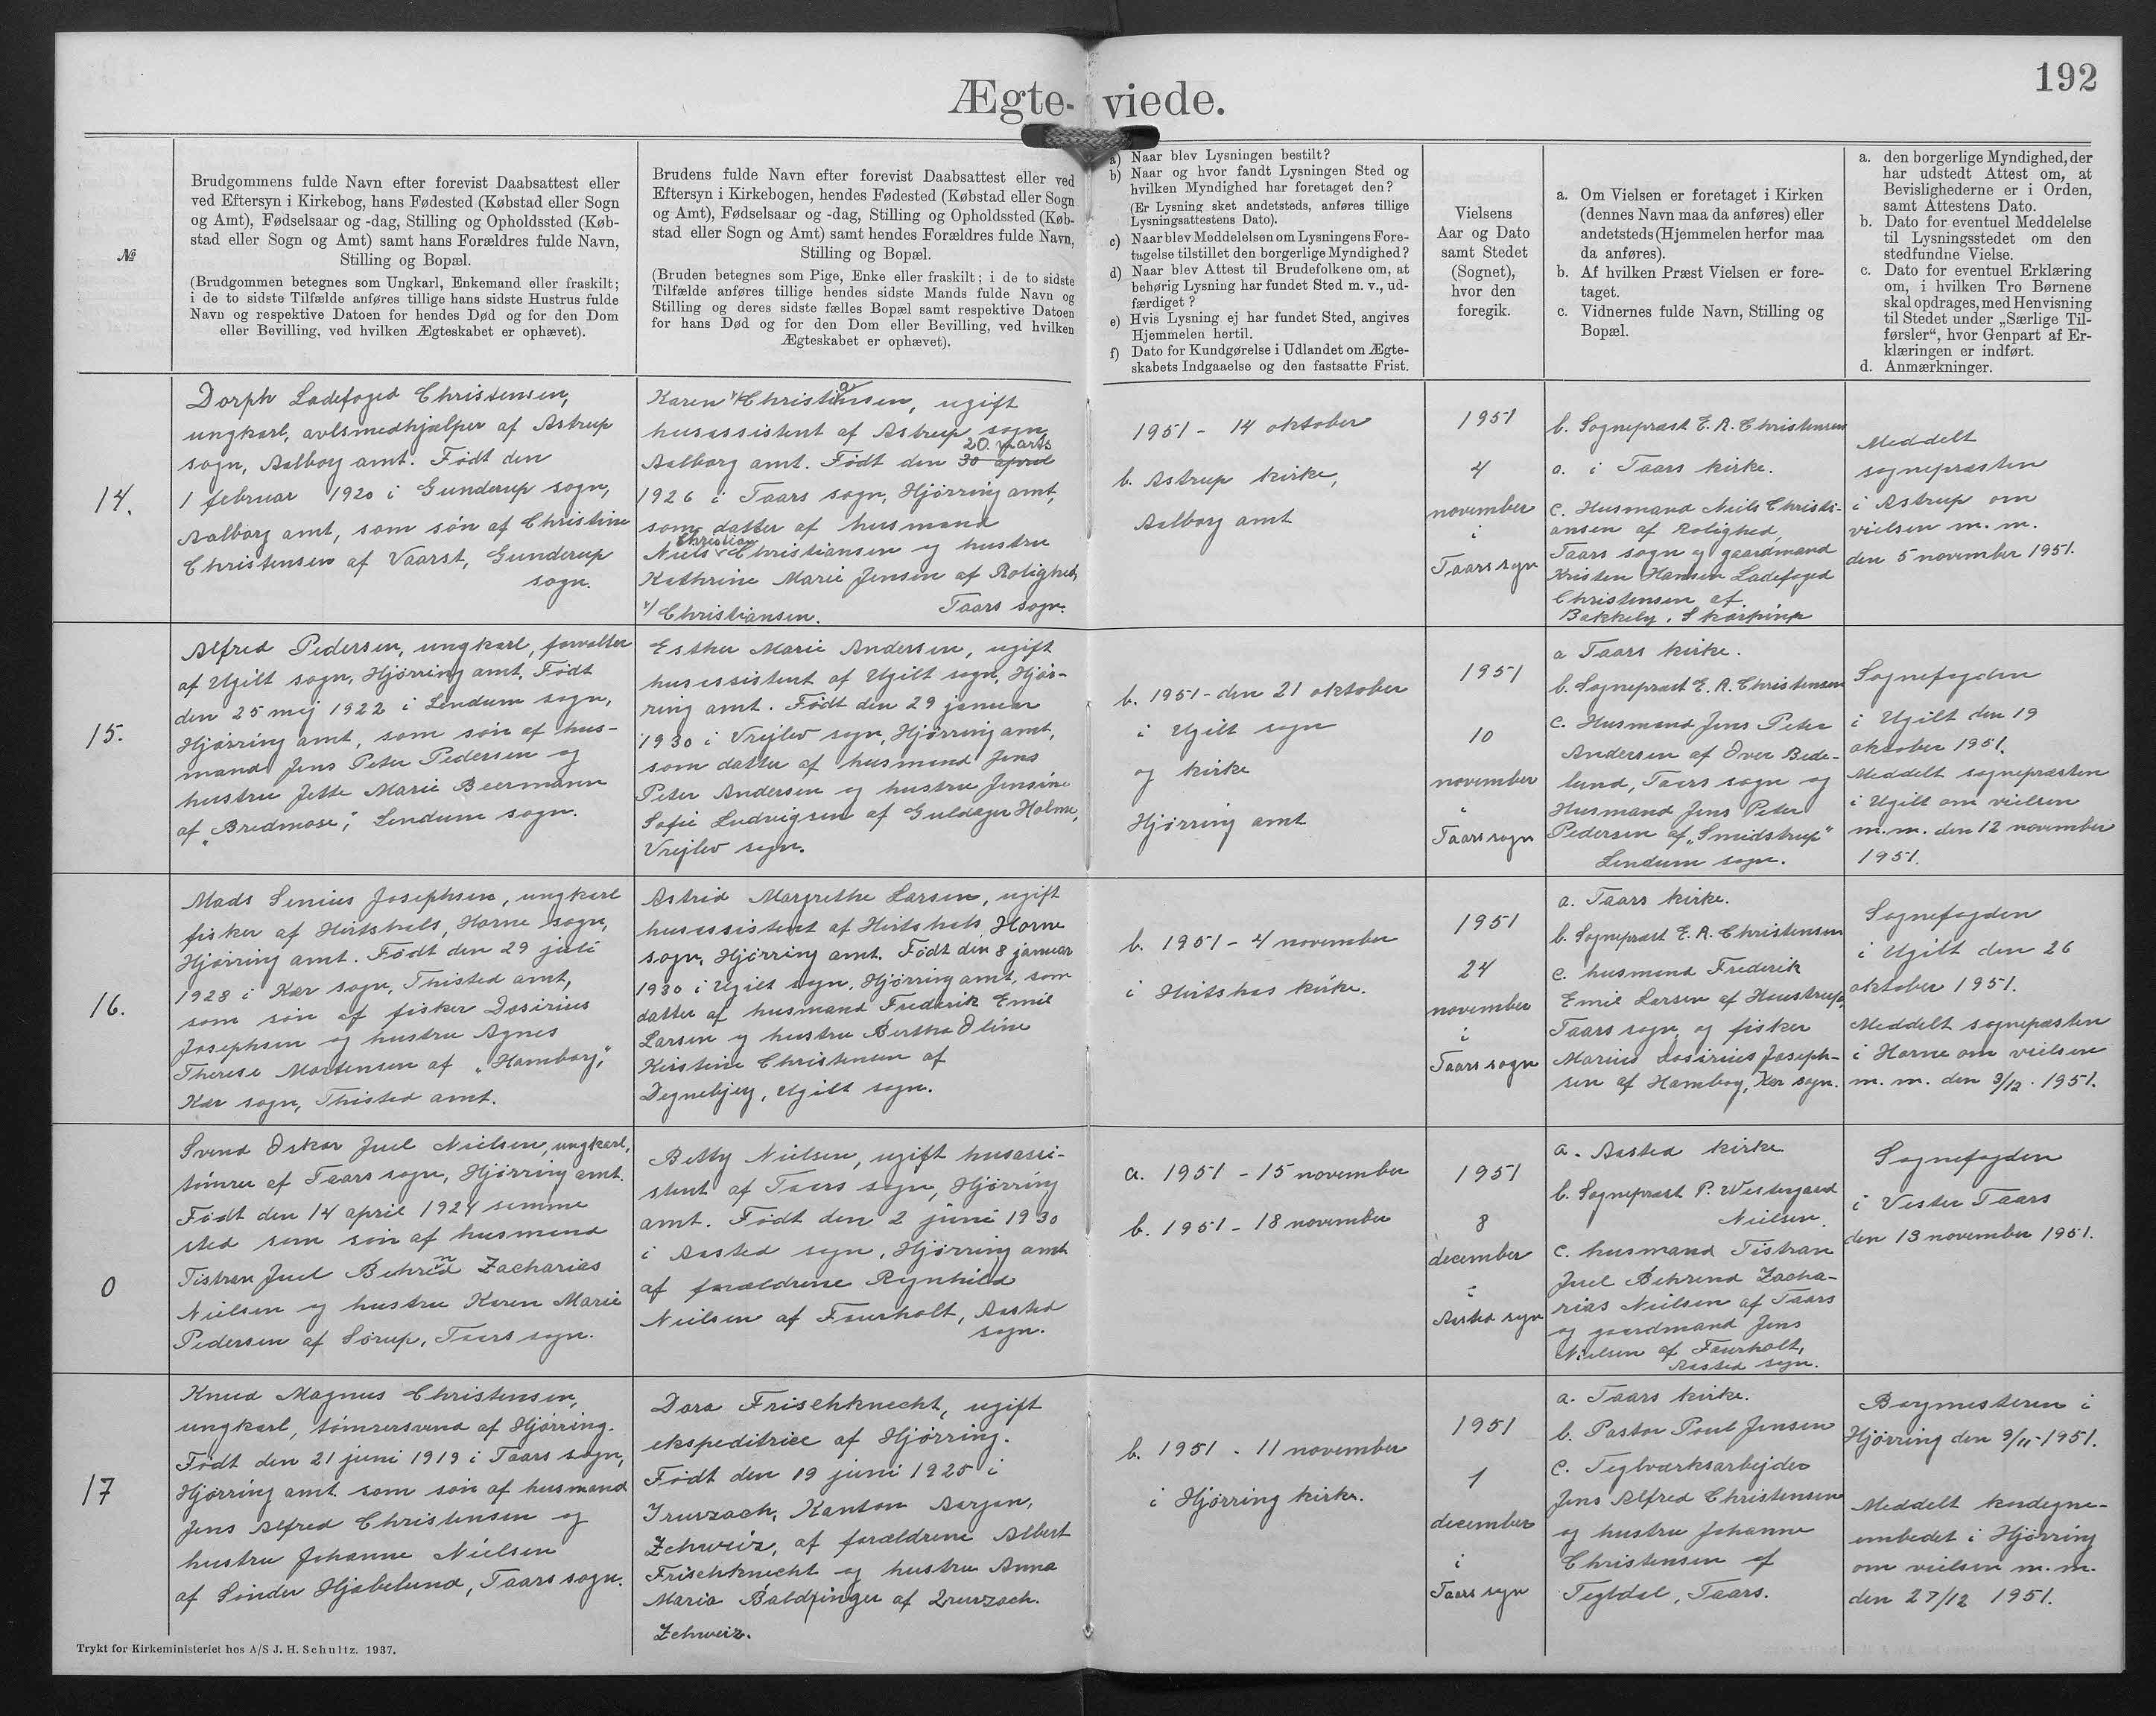 192
Ægte- viede.
№
Brudgommens fulde Navn efter forevist Daabsattest eller
ved Eftersyn i Kirkebog, hans Fødested (Købstad eller Sogn
og Amt), Fødselsaar og -dag, Stilling og Opholdssted (Køb-
stad eller Sogn og Amt) samt hans Forældres fulde Navn,
Stilling og Bopæl.
(Brudgommen betegnes som Ungkarl, Enkemand eller fraskilt;
i de to sidste Tilfælde anføres tillige hans sidste Hustrus fulde
Navn og respektive Datoen for hendes Død og for den Dom
eller Bevilling, ved hvilken Ægteskabet er ophævet).
Brudens fulde Navn efter forevist Daabsattest eller ved
Eftersyn i Kirkebogen, hendes Fødested (Købstad eller Sogn
og Amt), Fødselsaar og -dag, Stilling og Opholdssted (Køb-
stad eller Sogn og Amt) samt hendes Forældres fulde Navn,
Stilling og Bopæl.
(Bruden betegnes som Pige, Enke eller fraskilt; i de to sidste
Tilfælde anføres tillige hendes sidste Mands fulde Navn og
Stilling og deres sidste fælles Bopæl samt respektive Datoen
for hans Død og for den Dom eller Bevilling, ved hvilken
Ægteskabet er ophævet).
a) Naar blev Lysningen bestilt?
b) Naar og hvor fandt Lysningen Sted og
hvilken Myndighed har foretaget den?
(Er Lysning sket andetsteds, anføres tillige
Lysningsattestens Dato).
c) Naar blev Meddelelsen om Lysningens Fore-
tagelse tilstillet den borgerlige Myndighed?
d) Naar blev Attest til Brudefolkene om, at
behørig Lysning har fundet Sted m. v., ud-
færdiget?
e) Hvis Lysning ej har fundet Sted, angives
Hjemmelen hertil.
f) Dato for Kundgørelse i Udlandet om Ægte-
skabets Indgaaelse og den fastsatte Frist.
Vielsens
Aar og Dato
samt Stedet
(Sognet),
hvor den
foregik.
a. Om Vielsen er foretaget i Kirken
(dennes Navn maa da anføres) eller
andetsteds (Hjemmelen herfor maa
da anføres).
b. Af hvilken Præst Vielsen er fore-
taget.
c. Vidnernes fulde Navn, Stilling og
Bopæl.
a. den borgerlige Myndighed, der
har udstedt Attest om, at
Bevislighederne er i Orden,
samt Attestens Dato.
b. Dato for eventuel Meddelelse
til Lysningsstedet om den
stedfundne Vielse.
c. Dato for eventuel Erklæring
om, i hvilken Tro Børnene
skal opdrages, med Henvisning
til Stedet under „Særlige Til-
førsler“, hvor Genpart af Er-
klæringen er indført.
d. Anmærkninger.
14.
Dorph Ladefoged Christensen,
ungkarl, avlsmedhjælper af Astrup
sogn, Aalborg amt. Født den
1 februar 1920 i Gunderup sogn,
Aalborg amt, som søn af Christine
Christensen af Vaarst, Gunderup
sogn.
Karen Christiansen, ugift
husassistent af Astrup sogn,
20. marts
Aalborg amt. Født den 30 april
1926 i Taars sogn, Hjørring amt,
som datter af husmand
Christian
Niels Christiansen og hustru
Kathrine Marie Jensen af Rolighed,
Taars sogn.
Christiansen.
1951 - 14 oktober
b. Astrup kirke,
Aalborg amt
1951
4
november
i
Taars sogn
b. Sognepræst E. A. Christensen
a. i Taars kirke.
c. Husmand Niels Christi-
ansen af Rolighed,
Taars sogn og gaardmand
Kristen Hansen Ladefoged
Christensen af
Bakkely, Skørping
Meddelt
sognepræsten
i Astrup om
vielsen m. m.
den 5 november 1951.
15.
Alfred Pedersen, ungkarl, forvalter
af Ugilt sogn, Hjørring amt. Født
den 25 maj 1922 i Lendum sogn,
Hjørring amt, som søn af hus-
mand Jens Peter Pedersen og
hustru Jette Marie Beermann
af „Bredmose“, Lendum sogn.
Esther Marie Andersen, ugift
husassistent af Ugilt sogn, Hjør-
ring amt. Født den 29 januar
1930 i Vrejlev sogn, Hjørring amt,
som datter af husmand Jens
Peter Andersen og hustru Jensine
Sofie Ludvigsen af Guldager Holme,
Vrejlev sogn.
b. 1951 - den 21 oktober
i Ugilt sogn
og kirke
Hjørring amt
1951
10
november
i
Taars sogn
a Taars kirke.
b. Sognepræst E. A. Christensen
c. Husmand Jens Peter
Andersen af Over Bede-
lund, Taars sogn og
Husmand Jens Peter
Pedersen af „Smidstrup“
Lendum sogn.
Sognefogden
i Ugilt den 19
oktober 1951.
Meddelt sognepræsten
i Ugilt om vielsen
m. m. den 12 november
1951.
16.
Mads Senius Josephsen, ungkarl
fisker af Hirtshals, Horne sogn,
Hjørring amt. Født den 29 juli
1928 i Kær sogn, Thisted amt,
som søn af fisker Dosirius
Josephsen og hustru Agnes
Therese Mortensen af „Hamborg“,
Kær sogn, Thisted amt.
Astrid Margrethe Larsen, ugift
husassistent af Hirtshals, Horne
sogn, Hjørring amt. Født den 8 januar
1930 i Ugilt sogn, Hjørring amt, som
datter af husmand Frederik Emil
Larsen og hustru Bertha Oline
Kirstine Christensen af
Degnebjerg, Ugilt sogn.
b. 1951 - 4 november
i Hirtshas kirke.
1951
24
november
i
Taars sogn
a. Taars kirke.
b. Sognepræst E. A. Christensen
c. husmand Frederik
Emil Larsen af Hunstrup,
Taars sogn, og fisker
Marius Dosirius Joseph-
sen af Hamborg, Kær sogn.
Sognefogden
i Ugilt den 26
oktober 1951.
Meddelt sognepræsten
i Horne om vielsen
m. m. den 3/12. 1951.
0
Svend Oskar Juel Nielsen, ungkarl,
tømrer af Taars sogn, Hjørring amt.
Født den 14 april 1924 samme
sted som søn af husmand
Tistran Juel Behrend Zacharias
Nielsen og hustru Karen Marie
Pedersen af Sørup, Taars sogn.
Betty Nielsen, ugift husassi-
stent af Taars sogn, Hjørring
amt. Født den 2 juni 1930
i Aasted sogn, Hjørring amt
af forældrene Regnhild
Nielsen af Faurholt, Aasted
sogn.
a. 1951 - 15 november
b. 1951 - 18 november
1951
8
december
i
Aasted sogn
a. Aasted kirke
b. Sognepræst P. Westergaard
Nielsen.
c. husmand Tistran
Juel Behrend Zacha-
rias Nielsen af Taars
og gaardmand Jens
Nielsen af Faurholt,
Aasted sogn.
Sognefogden
i Vester Taars
den 13 november 1951.
17
Knud Magnus Christensen,
ungkarl, tømrersvend af Hjørring.
Født den 21 juni 1919 i Taars sogn,
Hjørring amt som søn af husmand
Jens Alfred Christensen og
hustru Johanne Nielsen
af Sønder Hjabelund, Taars sogn.
Dora Frischknecht, ugift
ekspeditrice af Hjørring.
Født den 19 juni 1925 i
Kanton Aargau,
Schweiz, af forældrene Albert
Frischknecht og hustru Anna
Maria Baldinger af
Schweiz.
b. 1951 - 11 november
i Hjørring kirke.
1951
1
december
i
Taars sogn
a. Taars kirke.
b. Pastor Poul Jensen
c. Teglværksarbejder
Jens Alfred Christensen
og hustru Johanne
Christensen af
Tegldal, Taars.
Borgmesteren i
Hjørring den 9/11-1951.
Meddelt kordegne-
embedet i Hjørring
om vielsen m. m.
den 27/12 1951.
Trykt for Kirkeministeriet hos A/S J. H. Schultz. 1937.